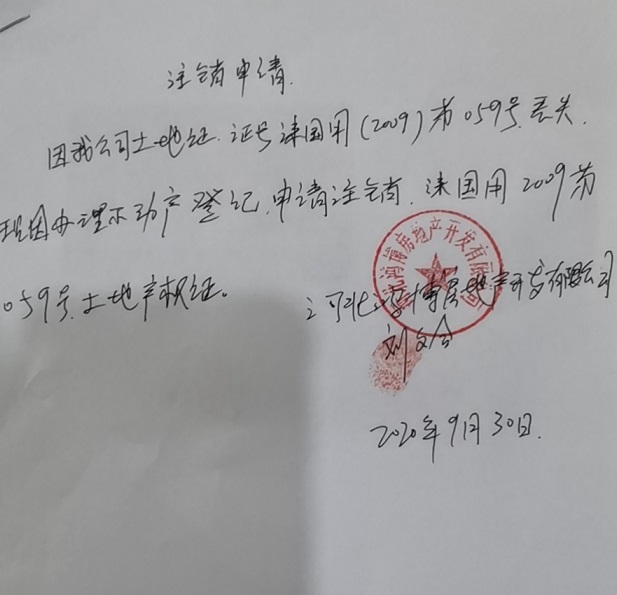 注销申请
因我公司土地证.证号涞国用(2009)第059号.丢失.
现因办理不动产登记.申请注销.涞国用2009第
059号.土地产权证。
房地产开发有限公司
房地产开发有限公司
刘文会
2020年9月30日.